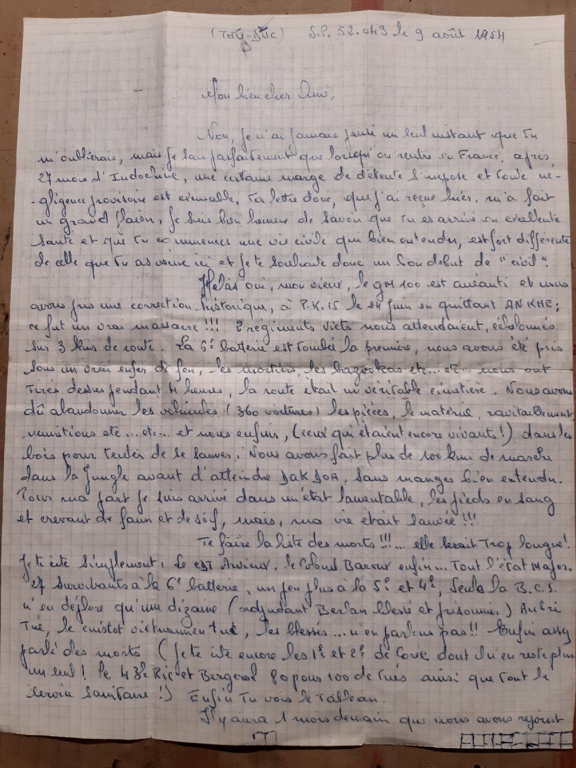 (THU-DUC) S.P. 52.043 le 9 août 1954
Mon bien cher Ami,
Non, je n'ai jamais senti un seul instant que tu
m'oublierais, mais je sais parfaitement que lorsqu'on rentre en France, après
27 mois d'Indochine, une certaine marge de détente s'impose et toute né-
gligence provisoire est excusable, ta lettre donc, que j'ai reçue hier, m'a fait
un grand plaisir, je suis bien heureux de savoir que tu es arrivé en excellente
santé et que tu commences une vie civile qui bien entendu, est fort différente
de celle que tu as vécue ici et je te souhaite donc un bon début de "civil".
Hélas oui, mon vieux, le GM 100 est anéanti et nous
avons pris une correction historique, à P.K. 15 le 24 juin en quittant ANKHE;
ce fut un vrai massacre !!! 2 régiments viets nous attendaient, échelonnés
sur 3 kms de route. La 6° batterie est tombée la première, nous avons été pris
sous un vrai enfer de feu, les mortiers, les bazookas etc... etc... nous ont
tirés dessus pendant 4 heures, la route était un véritable cimetière. Nous avons
dû abandonner les véhicules (360 voitures) les pièces, le matériel, ravitaillement
munitions etc... etc... et nous enfuir, (ceux qui étaient encore vivants!) dans les
bois pour tenter de se sauver. Nous avons fait plus de 100 kms de marche
dans la jungle avant d'atteindre DAKDOA, sans manger bien entendu.
Pour ma part je suis arrivé dans un état lamentable, les pieds en sang
et crevant de faim et de soif, mais, ma vie était sauvée !!!
Te faire la liste des morts !!!... elle serait trop longue!
Je te cite simplement: le Cdt le Colonel Barrou enfin... Tout l'état Major.
27 survivants à la 6° batterie, un peu plus à la 5° et 4°, seule la B.C.S.
n'en déplore qu'une dizaine (adjudant Berlan blessé et prisonnier) Aubri
Tué, le cuistot vietnamien tué, les blessés... n'en parlons pas!! Enfin assez
parlé des morts (je te cite encore les 1° et 2° de Corée dont il n'en reste plus
un seul! le 43° Bic et Bergerol 80 pour 100 de tués ainsi que tout le
service sanitaire!) Enfin tu vois le tableau.
Il y aura 1 mois demain que nous avons rejoint